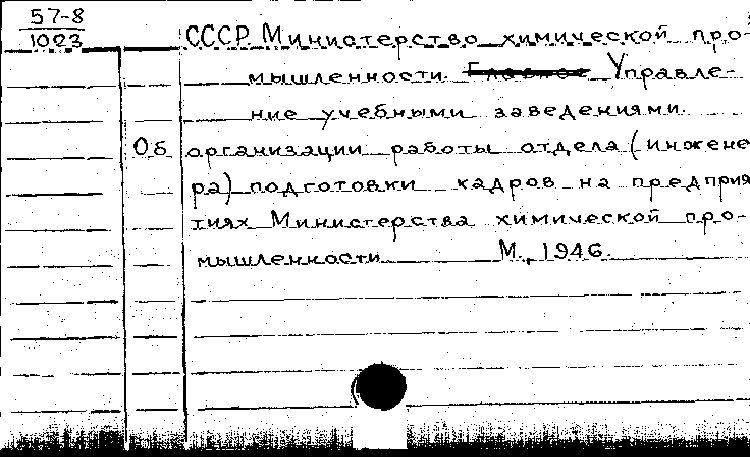 57-8
1023
СССР. Министерство химической про-
мышленности. Главное Управле-
ние учебными заведениями.
Об организации работы отдела (инжене
ра) подготовки кадров на предприя
тиях Министерства химической про-
мышленности М., 1946.